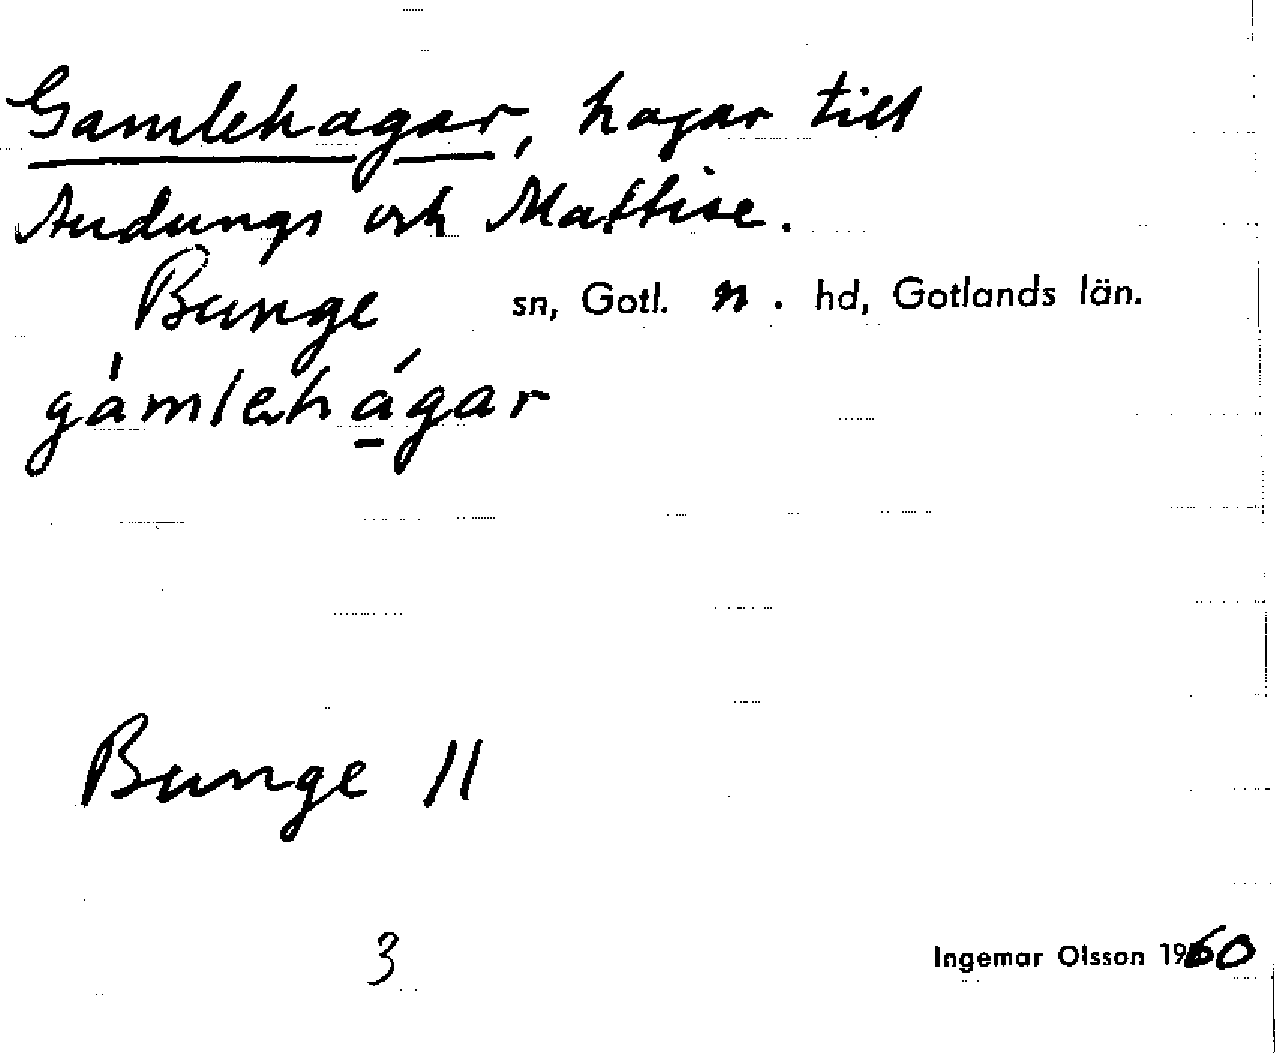 Gamlehagar, hagar till
Audungs och Mattise.
Bunge sn, Gotl. n. hd, Gotlands län.
gàmlehágar
Bunge 11
3
Ingemar Olsson 1960